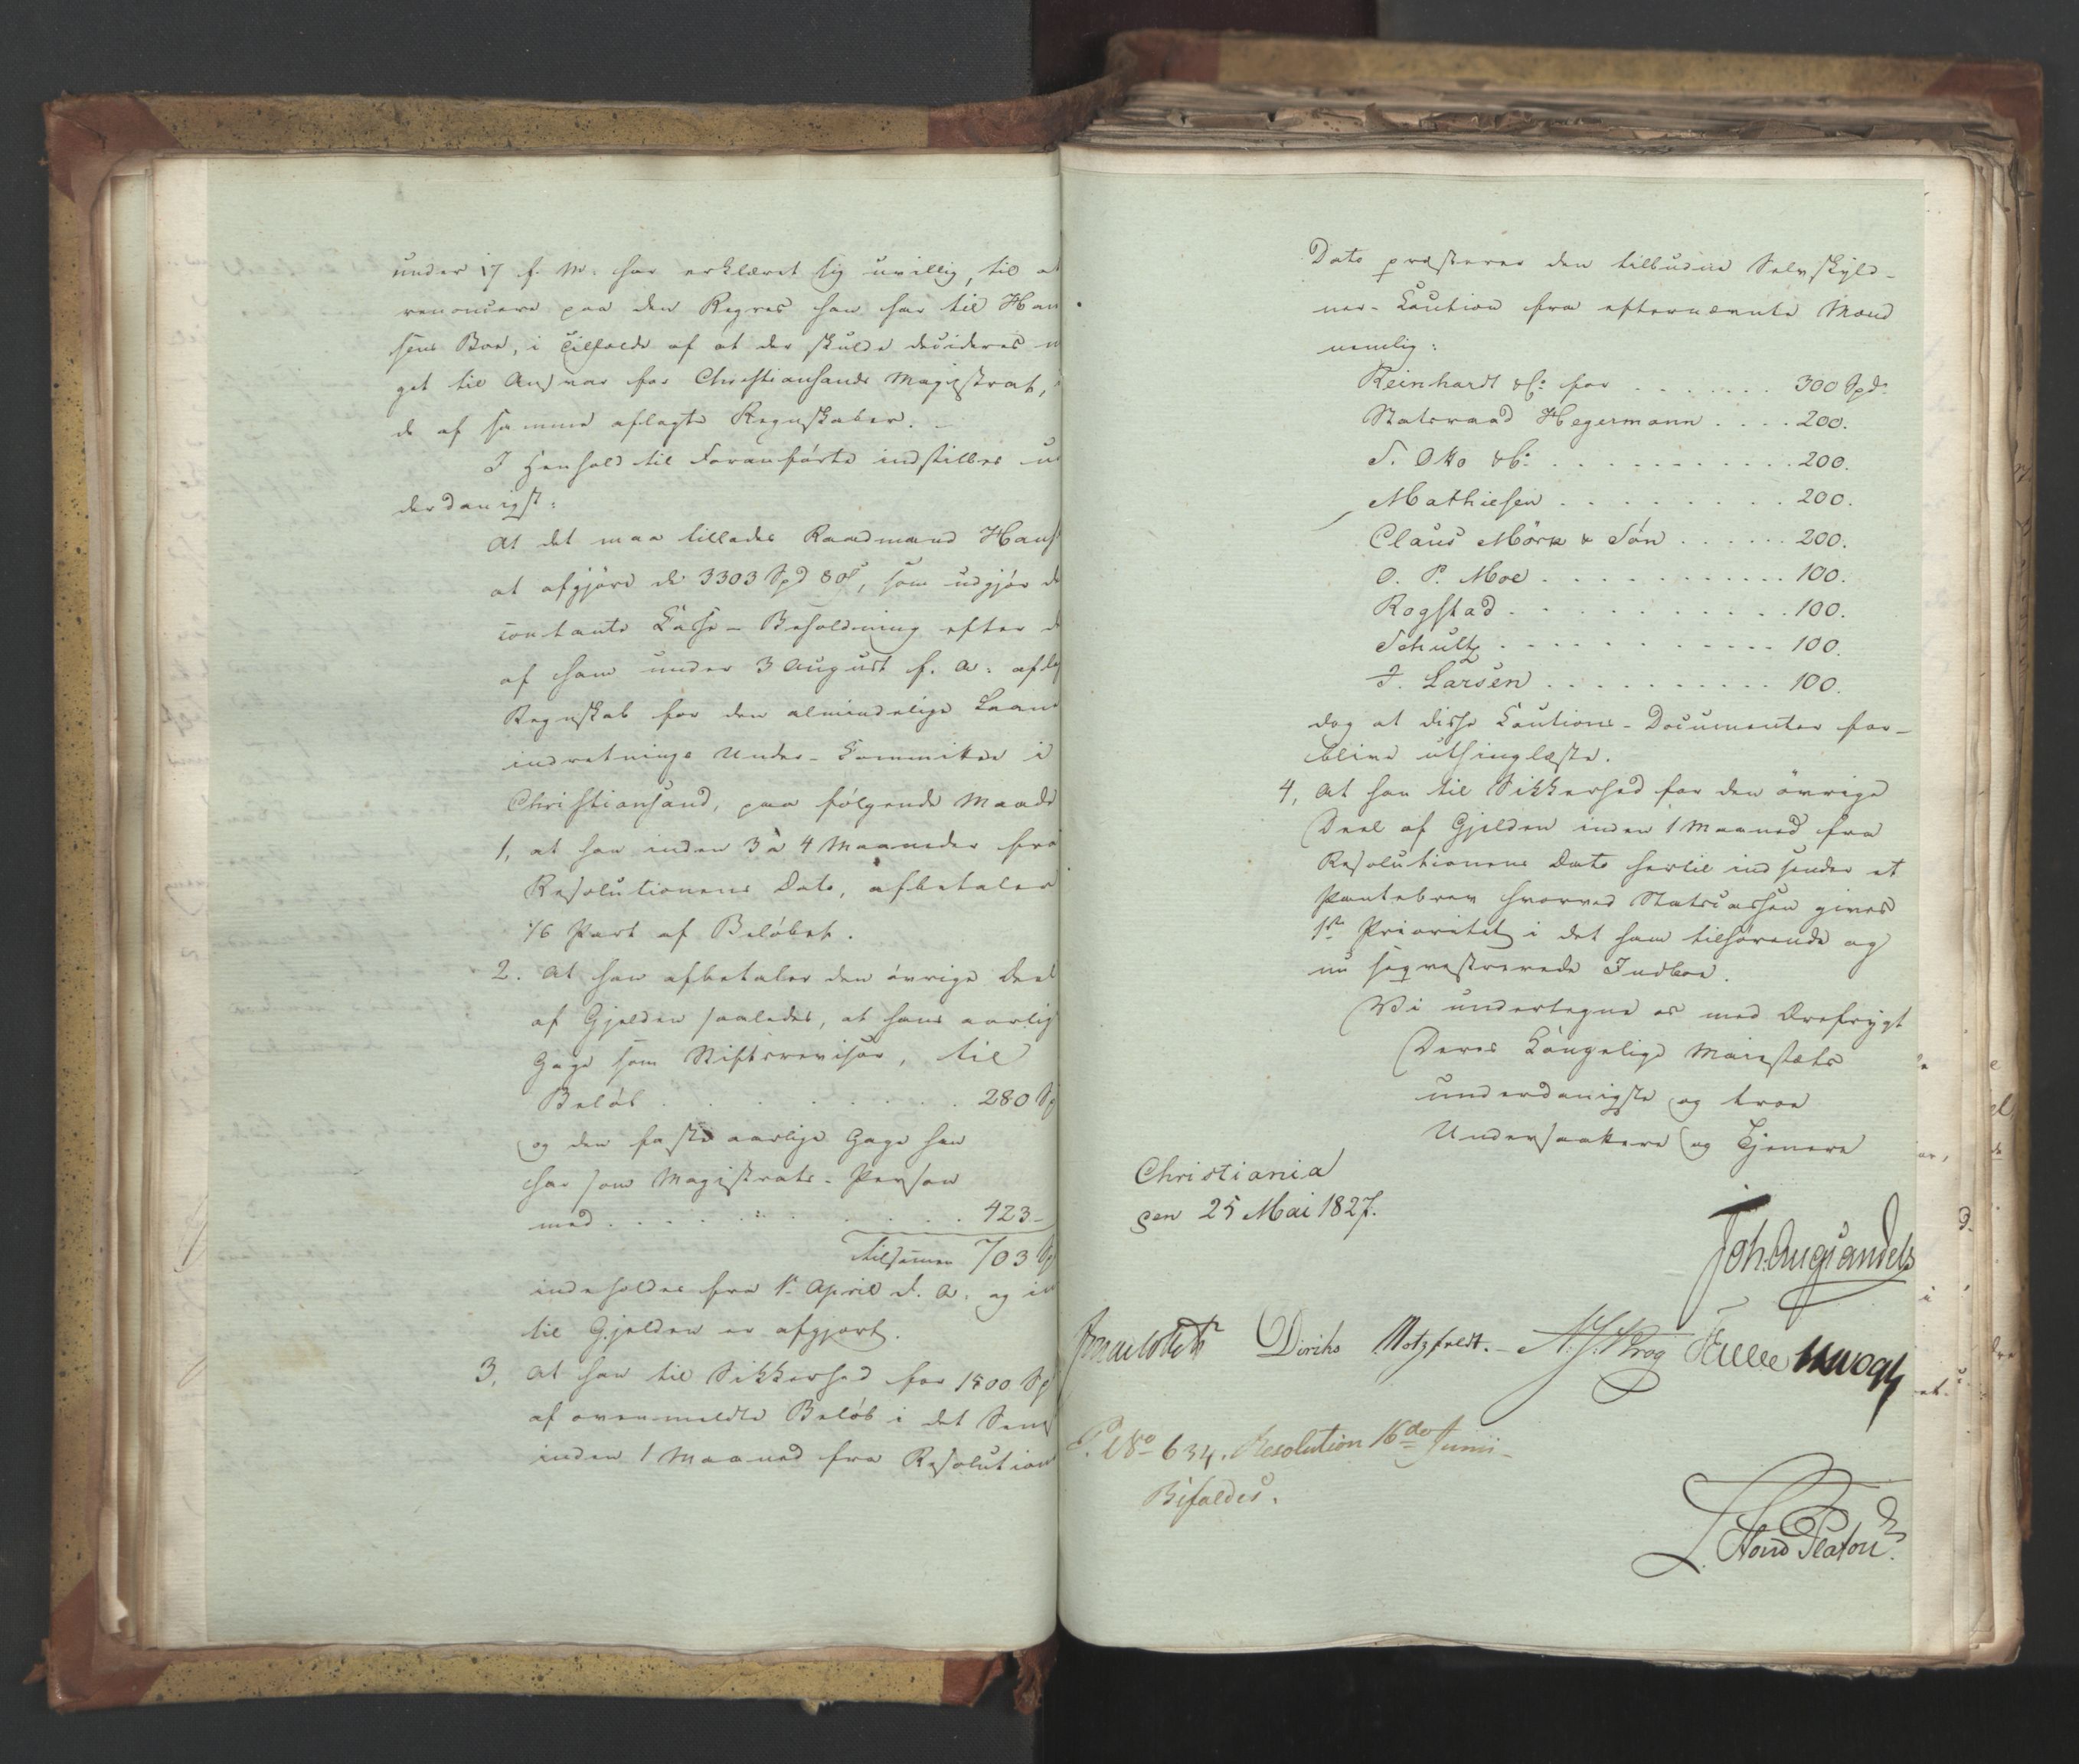 under 17 f. M. har erklæret sig uvillig, til at
renoncere paa den Regres han har til Han
sens Boe, i Tilfælde af at der skulde decideres n
get til Ansvar for Christiansands Magistrat,
de af samme aflagte Regnskaber.
I Henhold til Foranførte indstilles un
derdanigst:
At det maa tillades Raadmand Hans
at afgjøre de 3303 Spd 80 s, som udgjør d
contante Casse-Beholdning efter d
af ham under 3 August f. A. aflag
Regnskab for den almindelige Laane
indretnings Under-Committee i
Christiansand, paa følgende Maade
1, at han inden 3 à 4 Maaneder fra
Resolutionens Dato, afbetaler
1/6 Part af Beløbet.
2. At han afbetaler den øvrige Deel
af Gjelden saaledes, at hans aarlig
Gage som Stiftsrevisor, til
Beløb . . . . . . . . 280 Sp
og den faste aarlige Gage han
har som Magistrats-Person
med . . . . . . . . . 423 –
tilsamen 703 Sp
indeholdes fra 1st April d. A. og in
til Gjelden er afgjort.
3, At han til Sikkerhed for 1500 Sp
af ovenmeldte Beløb i det Sene
inden 1 Maaned fra Resolution
Dato præsterer den tilbudne Selvskyld-
ner-Caution fra efternævnte Mænd
nemlig:
Reinhardt & C: for . . . . . . . 300 Spd:
Statsraad Hegermann . . . . 200.
S. Otto & C: . . . . . . . . . . . 200.
Mathiesen . . . . . . . . . 200.
Claus Mörk & Søn . . . . . . 200.
O. P. Moe . . . . . . . . . . . . 100.
Rogstad . . . . . . . . . . . 100.
Schultz . . . . . . . . . . . . 100.
J. Larsen . . . . . . . . . . 100.
dog at disse Cautions-Documenter for-
blive uthinglæste.
4, At han til Sikkerhed for den øvrige
Deel af Gjelden inden 1 Maaned fra
Resolutionens Dato hertil indsender et
Pantebrev hvorved Statscassen gives
1ste Prioritet i det ham tilhørende og
nu seqvestrerede Indboe.
Vi undertegne os med Ærefrygt
Deres Kongelige Majestæts
underdanigste og troe
Undersaattere og Tjenere
Christiania
den 25 Mai 1827.
Joh. Aug. Sandels
J. Collett Diriks Motzfeldt. – A. S. Krog JHVogt
P. No 634. Resolution 16de Junii –
Bifaldes.
L. Stoud Platou